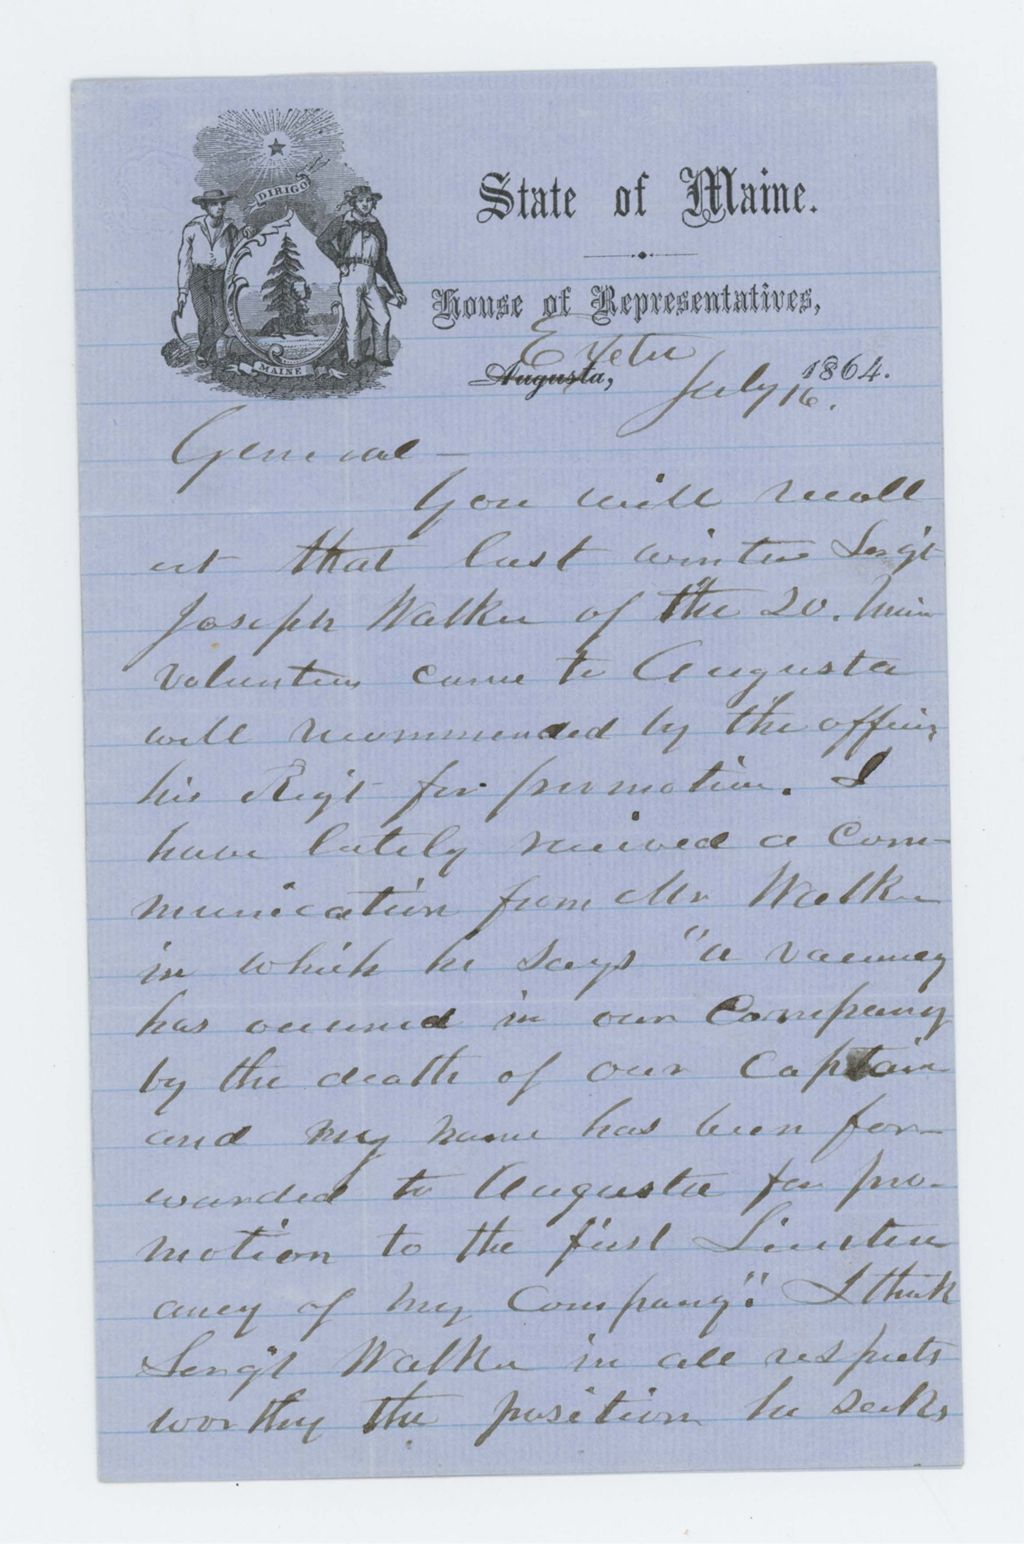 DIRIGO
MAINE
State of Maine.
House of Representatives,
Exeter
Augusta, July 16. 1864.
General -
You will recoll
ect that last winter Sergt
Joseph Walker of the 20. Main
Volunteers came to Augusta
well recommended by the officers
his Regt for promotion. I
have lately received a Com-
munication from Mr Walker
in which he says "a vacancy
has occurred in our Company
by the death of our Captain
and my name has been for-
warded to Augusta for pro-
motion to the first Lieuten
ancy of my Company". I think
Sergt Walker in all respects
worthy the position he seeks